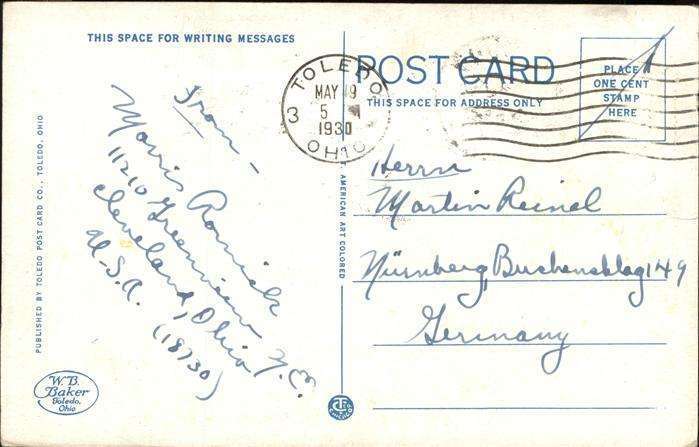 THIS SPACE FOR WRITING MESSAGES
From -
Morris Romick
11210 Greenview
Cleveland, Ohio N.E.
U.S.A. (18730)
PUBLISHED BY TOLEDO POST CARD CO., TOLEDO, OHIO
W.B.
Baker
Toledo,
Ohio
C.T. AMERICAN ART COLORED
TOLEDO
MAY 19
5 M
3
1930
OHIO
POST CARD
THIS SPACE FOR ADDRESS ONLY
PLACE
ONE CENT
STAMP
HERE
Herrn
Martin Reinel
Nürnberg, 149
Germany